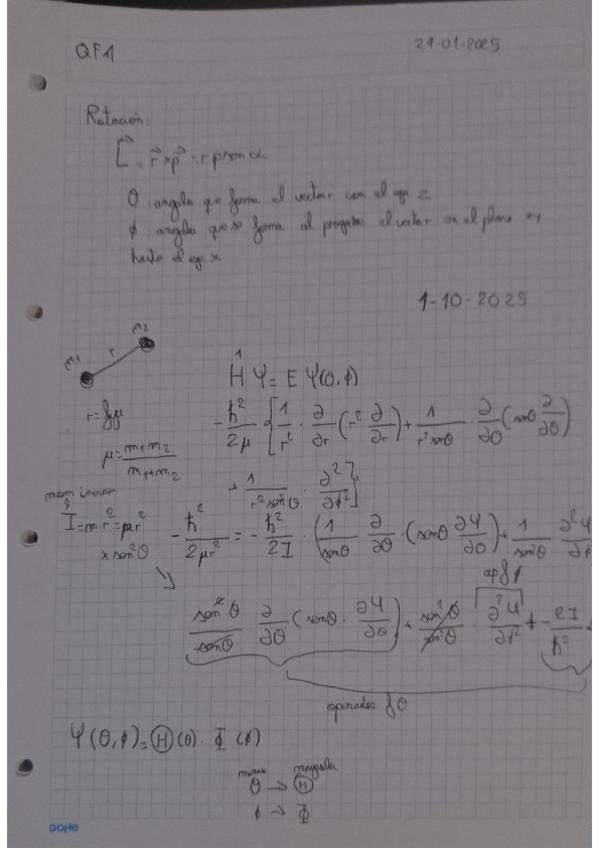 QF1 21-01-2025
Rotación:
L⃗ = r⃗ × p⃗ = r p sen α
θ angulo que forma el vector con el eje z
ϕ angulo que se forma al proyectar el vector en el plano xy
hasta el eje x
1-10-2025
m₁ r m₂
Ĥ Ψ = E Ψ(θ,ϕ)
-ħ²/2μ {1/r² · ∂/∂r (r² ∂/∂r) + 1/(r² senθ) · ∂/∂θ (senθ ∂/∂θ)
μ = m₁m₂/(m₁+m₂)
+ 1/(r² sen²θ) · ∂²/∂ϕ²}
I = m·r² = μr²
-ħ²/2μr² = -ħ²/2I · (1/senθ ∂/∂θ · (senθ ∂Ψ/∂θ) + 1/sen²θ ∂²Ψ/∂ϕ
x sen²θ
sen²θ/senθ ∂/∂θ (senθ · ∂Ψ/∂θ) + sen²θ/sen²θ · ∂²Ψ/∂ϕ² + -2I/ħ²
operador fθ
Ψ(θ,ϕ) = Ⓗ(θ) · Φ(ϕ)
minus mayuscula
θ → Ⓗ
ϕ → Φ
DOHO